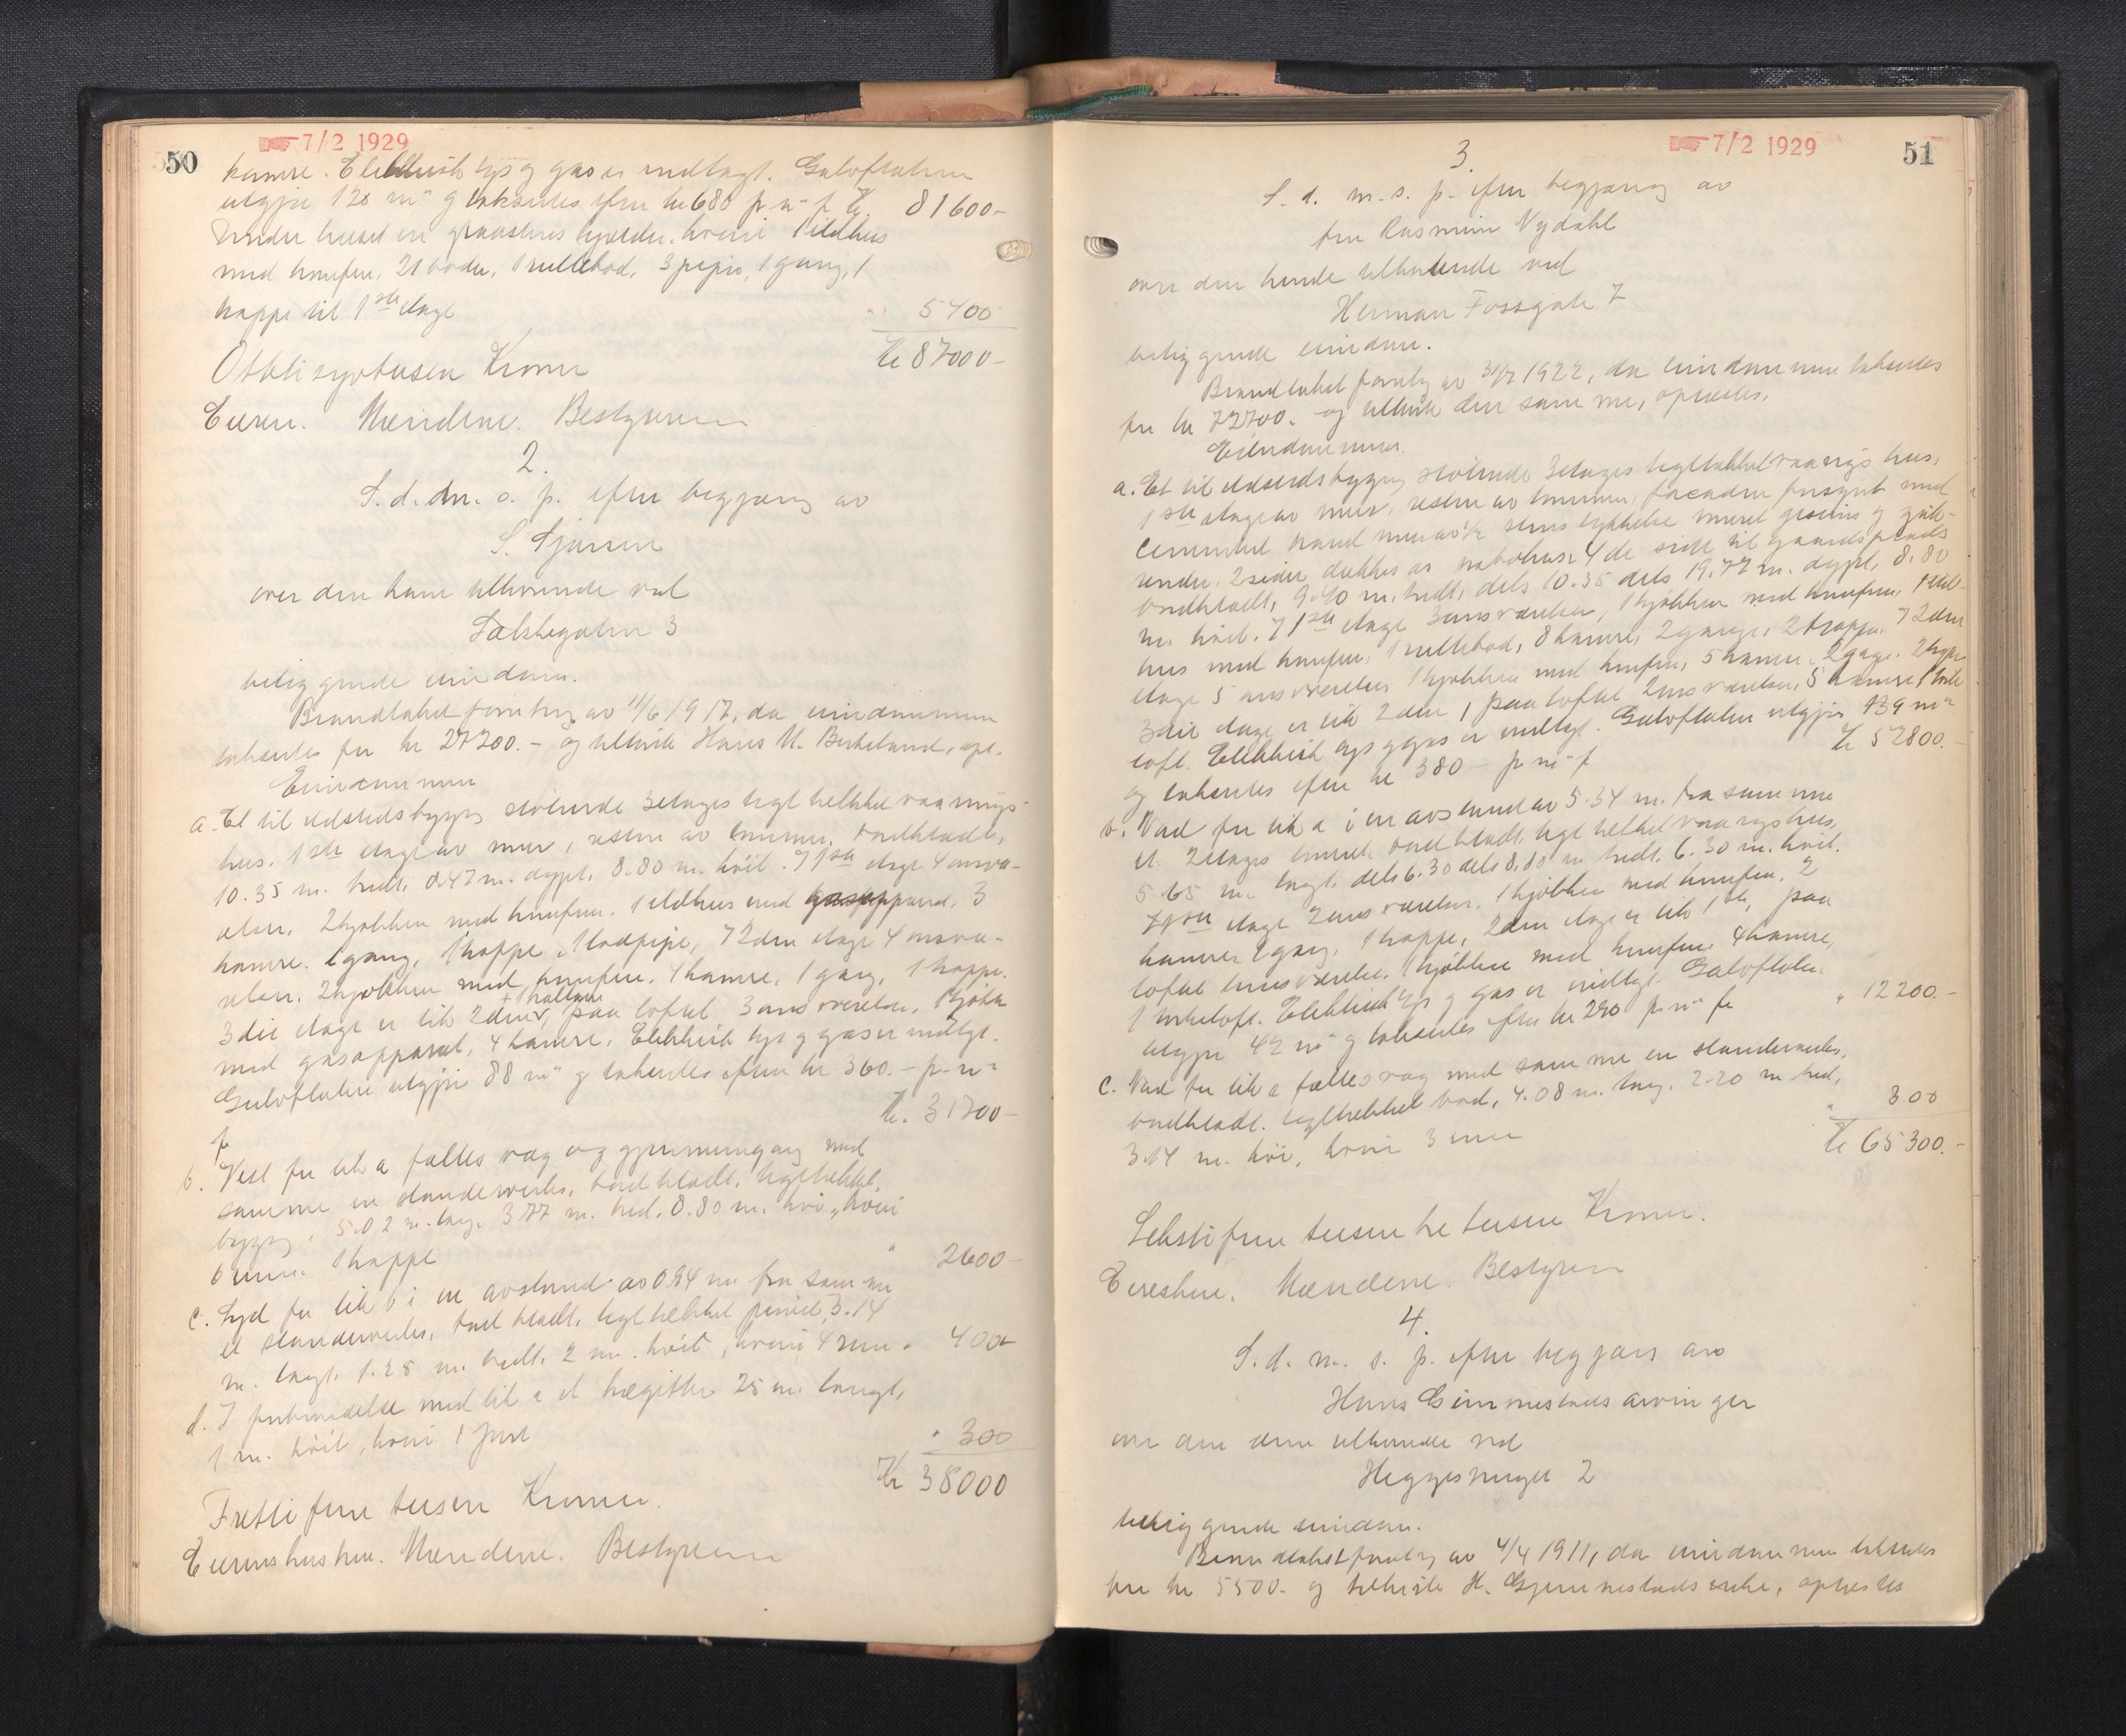 50
7/2 1929
kamre. Elektrisk lys og gas er indlagt. Gulvflaten
utgjør 120 m² og takseres efter kr 680 pr m² fl Kr. 81600-
Under huset en graastens kjælder, hvori 1 ildhus
med komfur, 21 boder, 1 rullebod, 3 piper, 1 gang, 1
trappe til 1ste etage " 5400
Kr 87000-
Ottiisyvtusen Kroner
Eieren. Mændene. Bestyreren
2.
S. d. m. s. p. efter begjæring av
S.
over den ham tilhørende ved
3
beliggende eiendom.
Brandtakstforretng av 11/6 1917, da eiendommen
takseres for kr 27200.- og tilhørte Hans M. Birkeland, opl.
Eiendommen
a. Et til ildstedsbyggn støtende 3etages teglt­ækket vaanings-
hus. 1ste etage av mur, resten av tømmer, bordklædt,
10.35 m. bredt, 8.47 m. dypt, 8.80 m. høit. I 1ste etage 4 mavæ-
relser, 2 kjøkken med komfur. 1 ildhus med gasapparat. 3
kamre. 1 gang, 1 trappe, I 2den etage 4 -
relser. 2 kjøkken med komfur. 4 kamre, 1 gang, 1 trappe.
3die etage er lik 2den, paa loftet 3 værelser, 1 kjøkk
med gasapparat, 4 kamre. Elektrisk lys og gas er indlagt.
Gulvflaten utgjør 88 m² og takseres efter kr 360.- pr. m²
fl Kr. 31700-
b. Vest for lit a fælles væg og gjennemgang med
samme en standerverks, bordklædt, tegltækket,
bygng, 5.02 m. lang. 3.77 m. bred. 8.80 m. høi, hvori
6 rum. 1 trappe " 2600-
c. Syd for lit b i en avstand av 0.94 m fra samme
et standerverks, bordklædt, tegltækket 3.14
m. langt, 1.25 m. bredt, 2 m. høit, hvori 4 rum " 400-
d. I forbindelse med lit a et trægitter 25 m. langt,
1 m. høit, hvori 1 port " 300
Kr 38000
Fretti fire tusen Kroner.
Eierens hustru. Mændene. Bestyreren
7/2 1929
51
3.
S. d. m. s. p. efter begjæring av
fru Rasmine Nydahl
over den hende tilhørende ved
Herman Fossgate 7
beliggende eiendom.
Brandtakst forretng av 31/7 1922, da eiendommen takseres
for kr 72700.- og tilhørte den samme, oplæstes.
Eiendommen
a. Et til ildstedsbyggng støtende 3etages tegltækket vaanings hus,
1ste etage av mur, resten av tømmer, facaden forsynt med
cementert brand mur av 1/2 stens tykkelse muret gesims og
under. 2 sider dækkes av nabohus. 4de side til gaardsplads
bordklædt, 9.40 m. bredt, dels 10.35 dels 19.77 m. dypt, 8.80
m. høit. I 1ste etage 3 værelser, 1 kjøkken med komfur, 1 ild-
hus med komfur, 1 rullebod, 8 kamre, 2 gange, 2 trapper. I 2den
etage 5 værelser 1 kjøkken med komfur, 5 kamre. 2 gange. 2 trapper
3die etage er lik 2den, paa loftet 2 værelser, 5 kamre 1
loft. Elektrisk lys og gas er indlagt. Gulvflaten utgjør 139 m²
og takseres efter kr 380- pr m² fl Kr 52800.-
b. Nord for lit a i en avstand av 5.34 m. fra samme
et 2etages tømret, bordklædt, tegltækket vaaningshus,
5.65 m. langt, dels 6.30 dels 8.80 m bredt, 6.30 m. høit.
I 1ste etage 2 værelser. 1 kjøkken med komfur. 2
kamre 1 gang. 1 trappe, 2den etage er lik 1ste, paa
loftet værelse. 1 kjøkken med komfur. 4 kamre,
1 tørkeloft. Elektrisk lys og gas er indlagt. Gulvflaten
utgjør 42 m² og takseres efter kr 290 pr. m² fl " 12200.-
c. Nord for lit a fælles væg med samme en standerverks,
bordklædt, tegltækket bod, 4.08 m. lang. 2.20 m bred,
3.14 m. høi, hvori 3 rum " 300
Kr 65300.-
Sekstifem tusen tre tusen Kroner.
Eiersken. Mændene. Bestyreren
4.
S. d. m. s. p. efter begjæring av
Hans Gimmestads arvinger
over den dem tilhørende ved
2
beliggende eiendom.
Brandtakstforretng av 4/4 1911, da eiendommen takseres
for kr 5500.- og tilhørte H. Gjemmestads enke, oplæstes